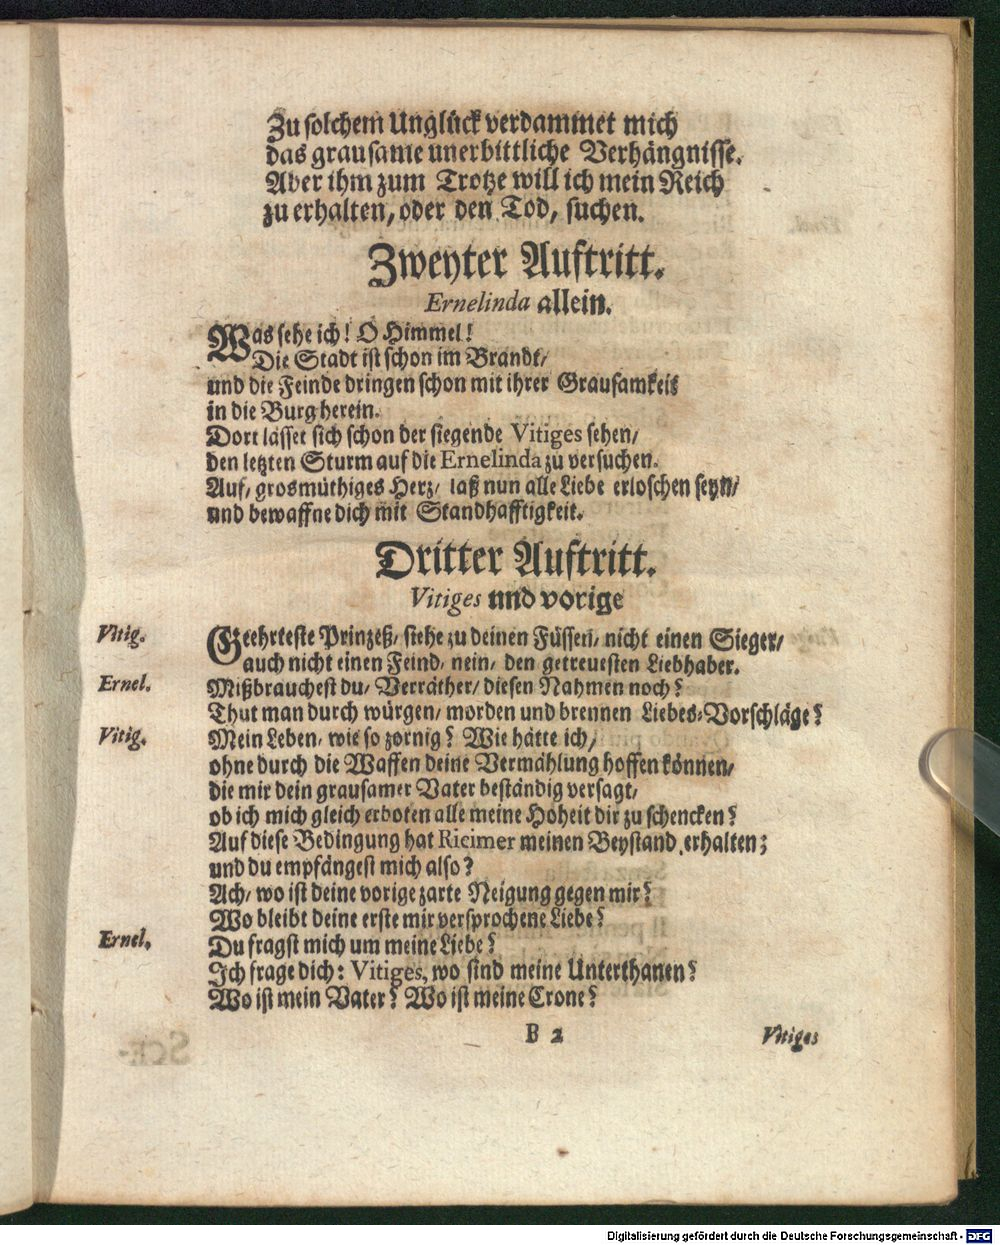 Zu solchem Unglück verdammet mich
das grausame unerbittliche Verhängnisse.
Aber ihm zum Trotze will ich mein Reich
zu erhalten, oder den Tod, suchen.
Zweyter Auftritt.
Ernelinda allein.
Was sehe ich! O Himmel!
Die Stadt ist schon im Brandt/
und die Feinde dringen schon mit ihrer Grausamkeit
in die Burg herein.
Dort lässet sich schon der siegende Vitiges sehen/
den letzten Sturm auf die Ernelinda zu versuchen.
Auf/ grosmüthiges Herz/ laß nun alle Liebe erloschen seyn/
und bewaffne dich mit Standhafftigkeit.
Dritter Auftritt.
Vitiges und vorige
Vitig. Geehrteste Prinzeß/ siehe zu deinen Füssen/ nicht einen Sieger/
auch nicht einen Feind/ nein/ den getreuesten Liebhaber.
Ernel. Mißbrauchest du/ Verräther/ diesen Nahmen noch?
Thut man durch würgen/ morden und brennen Liebes-Vorschläge?
Vitig. Mein Leben/ wie so zornig? Wie hätte ich/
ohne durch die Waffen deine Vermählung hoffen können/
die mir dein grausamer Vater beständig versagt/
ob ich mich gleich erboten alle meine Hoheit dir zu schencken?
Auf diese Bedingung hat Ricimer meinen Beystand erhalten;
und du empfängest mich also?
Ach/ wo ist deine vorige zarte Neigung gegen mir?
Wo bleibt deine erste mir versprochene Liebe?
Ernel. Du fragst mich um meine Liebe?
Ich frage dich: Vitiges, wo sind meine Unterthanen?
Wo ist mein Vater? Wo ist meine Crone?
B 2 Vitiges
Digitalisierung gefördert durch die Deutsche Forschungsgemeinschaft - DFG